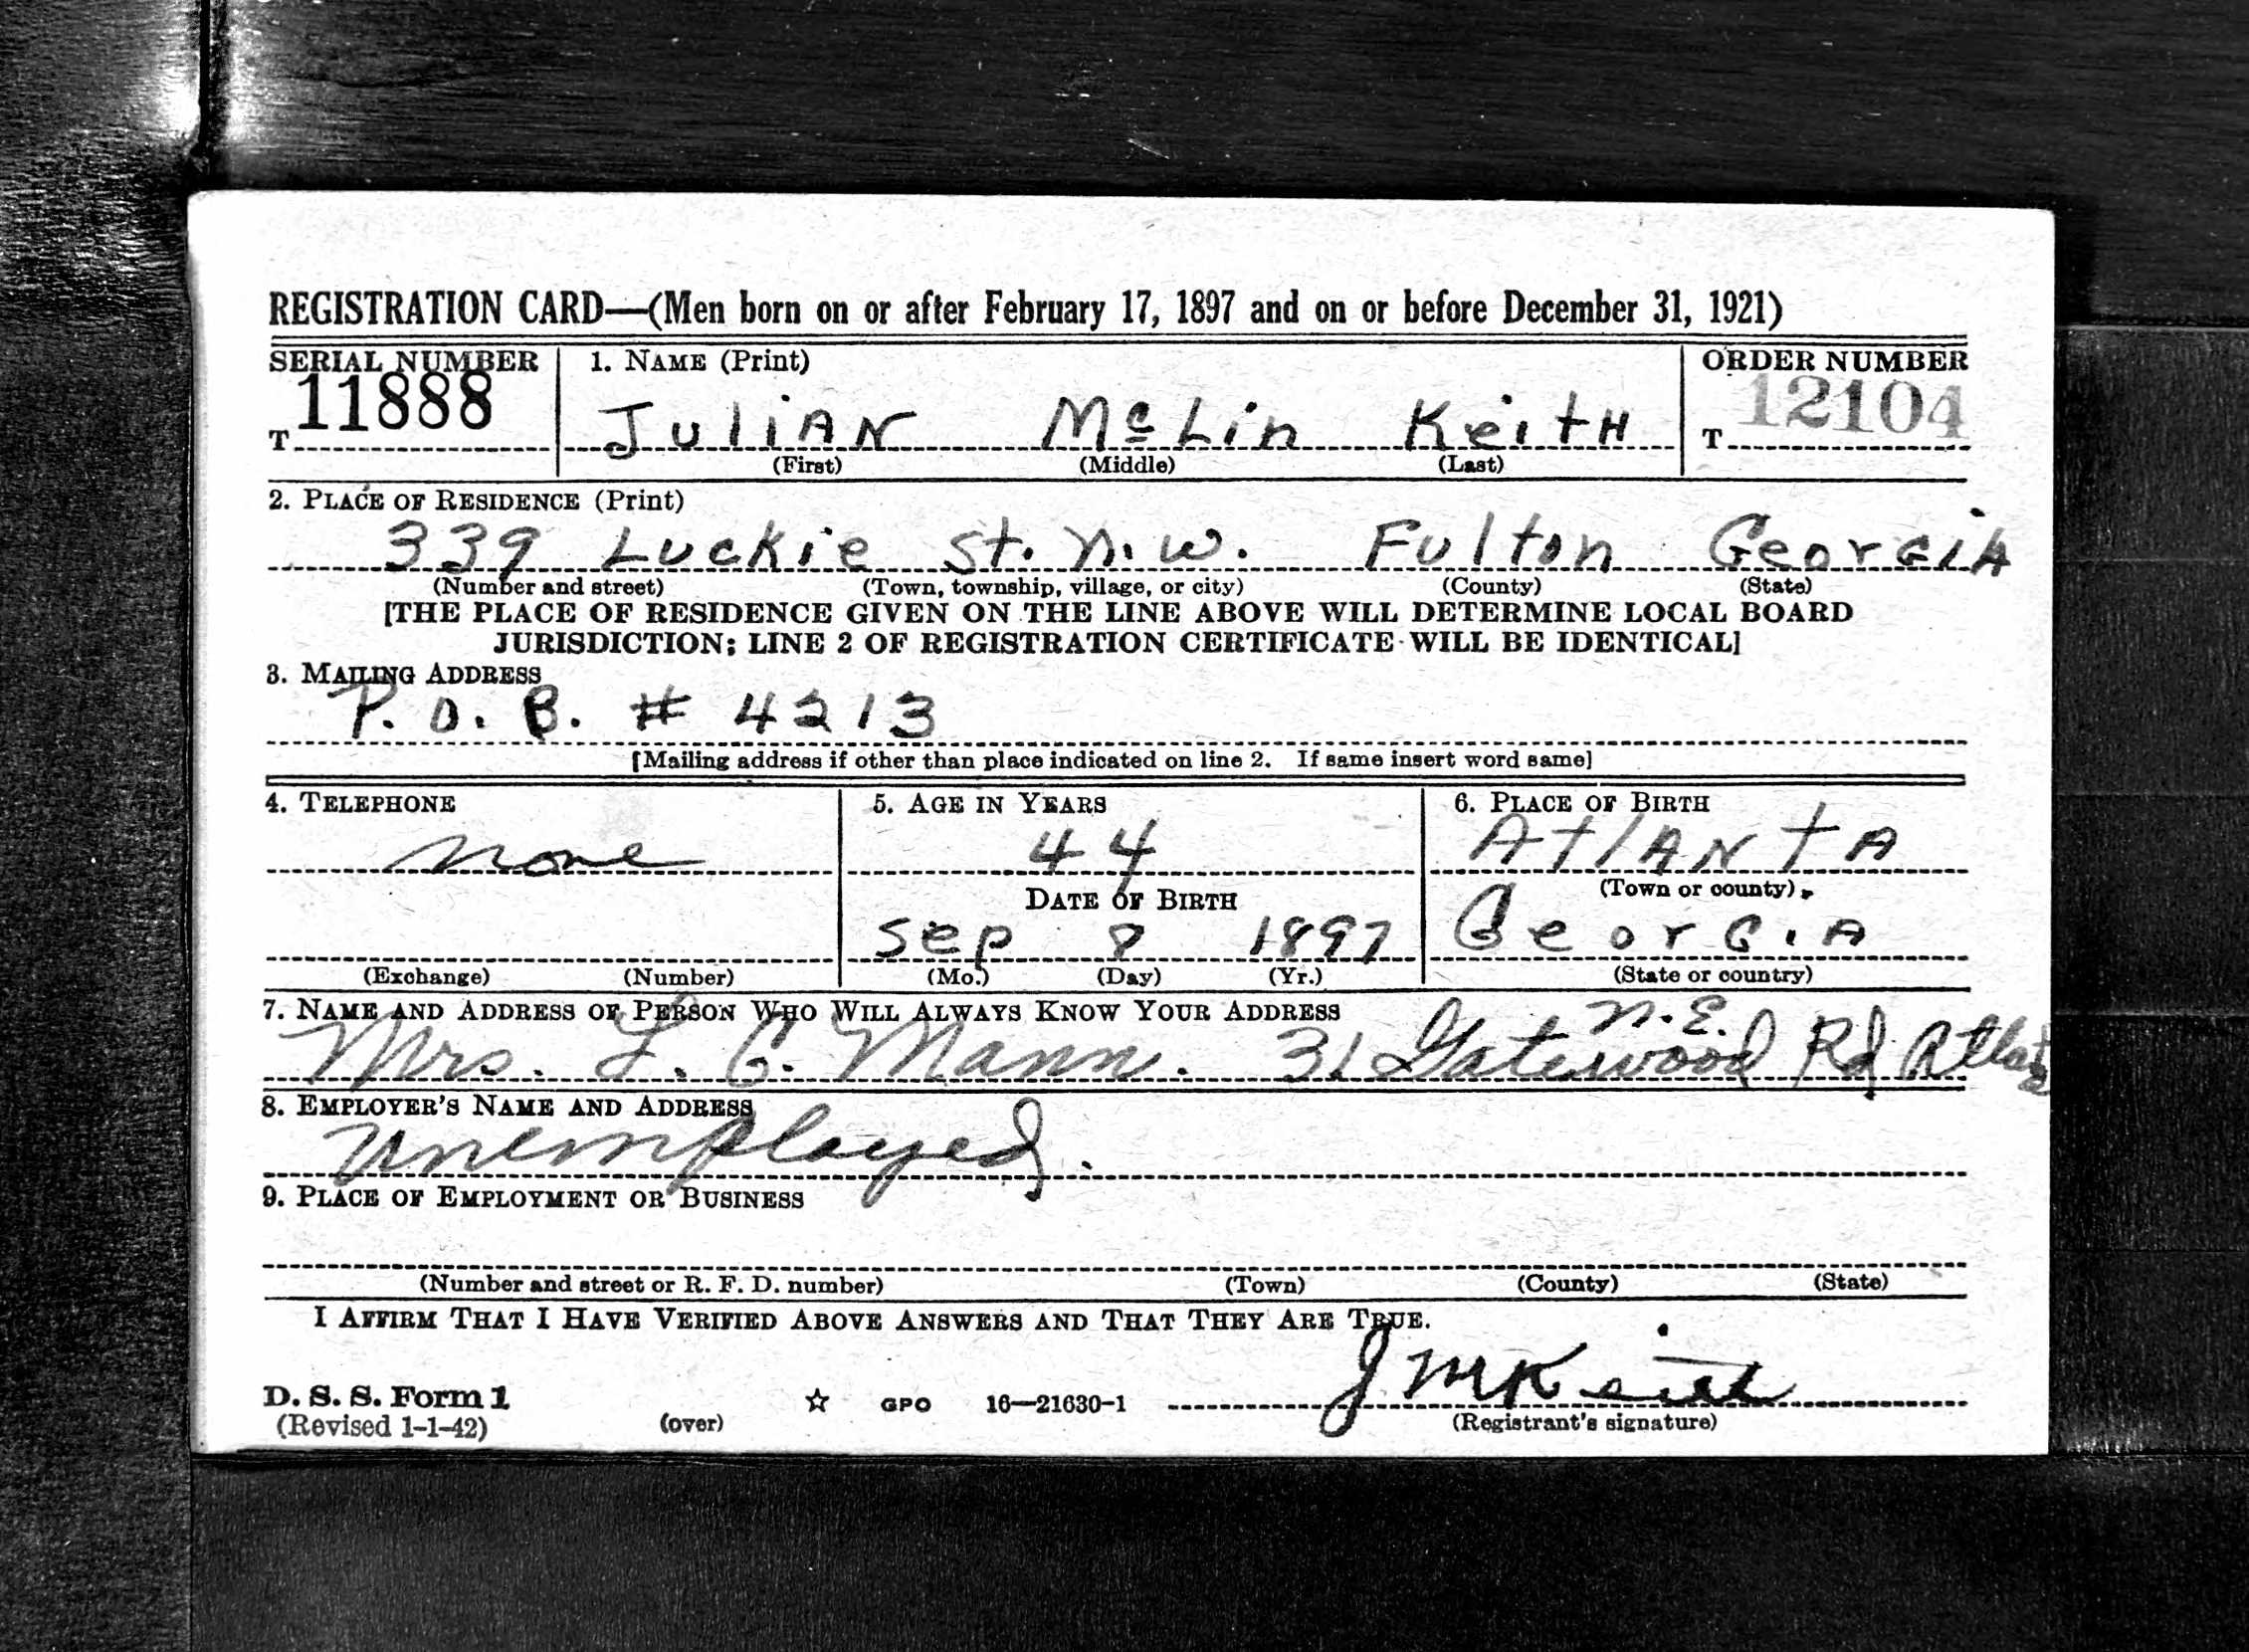 REGISTRATION CARD—(Men born on or after February 17, 1897 and on or before December 31, 1921)
SERIAL NUMBER 1. NAME (Print) ORDER NUMBER
T 11888 Julian McLin Keith T 12104
(First) (Middle) (Last)
2. PLACE OF RESIDENCE (Print)
339 Luckie St. N.W. Fulton Georgia
(Number and street) (Town, township, village, or city) (County) (State)
[THE PLACE OF RESIDENCE GIVEN ON THE LINE ABOVE WILL DETERMINE LOCAL BOARD
JURISDICTION; LINE 2 OF REGISTRATION CERTIFICATE WILL BE IDENTICAL]
3. MAILING ADDRESS
P.O.B. # 4213
[Mailing address if other than place indicated on line 2. If same insert word same]
4. TELEPHONE 5. AGE IN YEARS 6. PLACE OF BIRTH
none 44 Atlanta
DATE OF BIRTH (Town or county)
Sep 8 1897 Georgia
(Exchange) (Number) (Mo.) (Day) (Yr.) (State or country)
7. NAME AND ADDRESS OF PERSON WHO WILL ALWAYS KNOW YOUR ADDRESS
N.E.
Mrs. L. C. Mann. 31 Gatewood Rd Atlanta
8. EMPLOYER'S NAME AND ADDRESS
Unemployed.
9. PLACE OF EMPLOYMENT OR BUSINESS
(Number and street or R. F. D. number) (Town) (County) (State)
I AFFIRM THAT I HAVE VERIFIED ABOVE ANSWERS AND THAT THEY ARE TRUE.
J M Keith
D. S. S. Form 1 ☆ GPO 16—21630-1
(Revised 1-1-42) (over) (Registrant's signature)